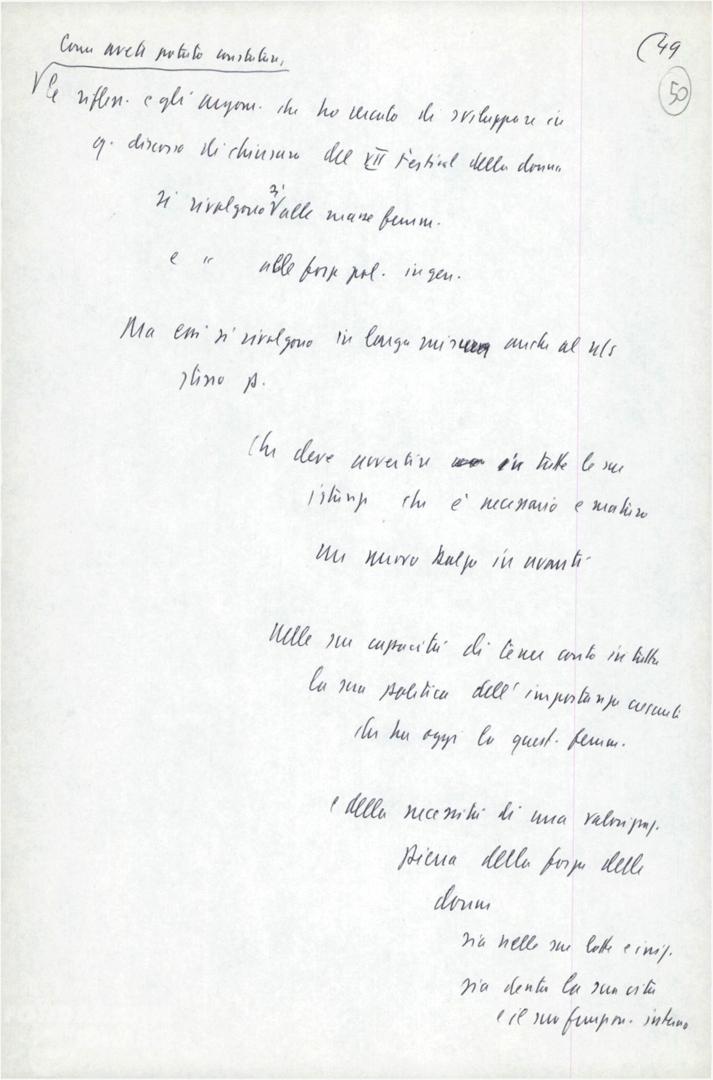 (49
50
Come avete potuto constatare,
le rifless. e gli argom. che ho cercato di sviluppare in
q. discorso di chiusura del VII Festival della donna
si rivolgono sì alle masse femm.
e " alle forze pol. in gen.
Ma essi si rivolgono in larga misura anche al n/s
stesso p.
che deve avvertire in tutte le sue
istanze che è necessario e maturo
un nuovo balzo in avanti
nelle sue capacità di tener conto in tutta
la sua politica dell'importanza crescente
che ha oggi la quest. femm.
e della necessità di una valorizzaz.
piena della forza delle
donne
sia nelle sue lotte e iniz.
sia dentro la sua vita
e il suo funzion. interno